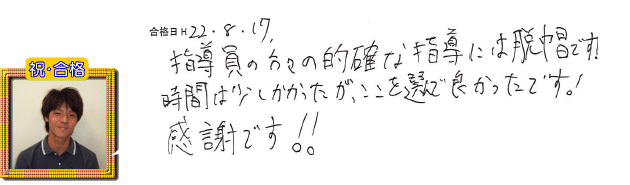 合格日 H 22・8・17.
祝・合格
指導員の方々の的確な指導には脱帽です!
時間は少しかかったが、ここを選んで良かったです!
感謝です!!